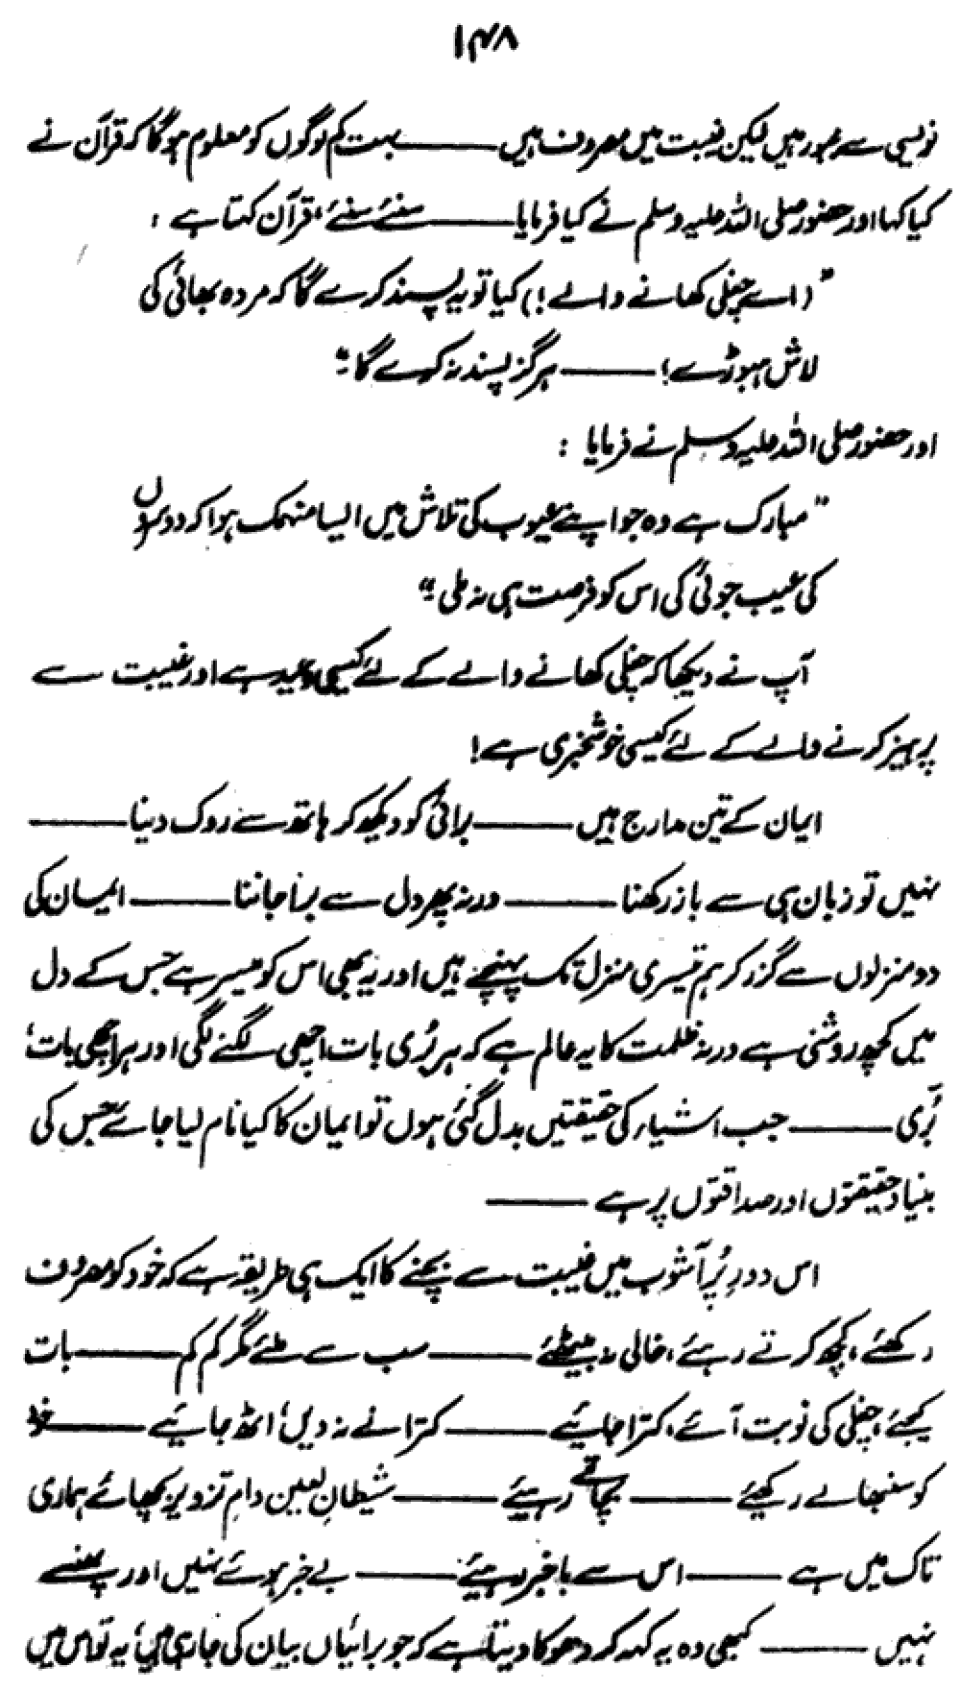 ۱۴۸
نویسی سے مجبور ہیں لیکن غیبت میں مصروف ہیں ——— بہت کم لوگوں کو معلوم ہوگا کہ قرآن نے
کیا کہا اور حضور صلی اللہ علیہ وسلم نے کیا فرمایا ——— سنئے سنئے، قرآن کہتا ہے :
"(اے چغلی کھانے والے!) کیا تو یہ پسند کرے گا کہ مردہ بھائی کی
لاش بھنبوڑے؛ ——— ہرگز پسند نہ کرے گا۔"
اور حضور صلی اللہ علیہ وسلم نے فرمایا :
"مبارک ہے وہ جو اپنے عیوب کی تلاش میں ایسا منہمک ہوا کہ دوسروں
کی عیب جوئی کی اس کو فرصت ہی نہ ملی۔"
آپ نے دیکھا کہ چغلی کھانے والے کے لئے کیسی وعید ہے اور غیبت سے
پرہیز کرنے والے کے لئے کیسی خوشخبری ہے!
ایمان کے تین مدارج ہیں ——— برائی کو دیکھ کر ہاتھ سے روک دینا ———
نہیں تو زبان ہی سے باز رکھنا ——— ورنہ پھر دل سے برا جاننا ——— ایمان کی
دو منزلوں سے گزر کر ہم تیسری منزل تک پہنچے ہیں اور یہ بھی اس کو میسر ہے جس کے دل
میں کچھ روشنی ہے ورنہ ظلمت کا یہ عالم ہے کہ ہر بُری بات اچھی لگنے لگی اور ہر اچھی بات،
بُری ——— جب اشیاء کی حقیقتیں بدل گئی ہوں تو ایمان کا کیا نام لیا جائے جس کی
بنیاد حقیقتوں اور صداقتوں پر ہے ———
اس دورِ پُر آشوب میں غیبت سے بچنے کا ایک ہی طریقہ ہے کہ خود کو مصروف
رکھئے، کچھ کرتے رہئے، خالی نہ بیٹھئے ——— سب سے ملئے مگر کم کم ——— بات
کیجئے، چغلی کی نوبت آئے، کترا جائیے ——— کترانے نہ دیں، اٹھ جائیے ——— خود
کو سنبھالے رکھئے ——— بچاتے رہیئے ——— شیطانِ لعین دامِ تزویر بچھائے ہماری
تاک میں ہے ——— اس سے باخبر رہیئے ——— بے خبر ہوئے نہیں اور پھنسے
نہیں ——— کبھی وہ یہ کہہ کر دھوکا دیتا ہے کہ جو برائیاں بیان کی جا رہی ہیں، یہ تو اس میں